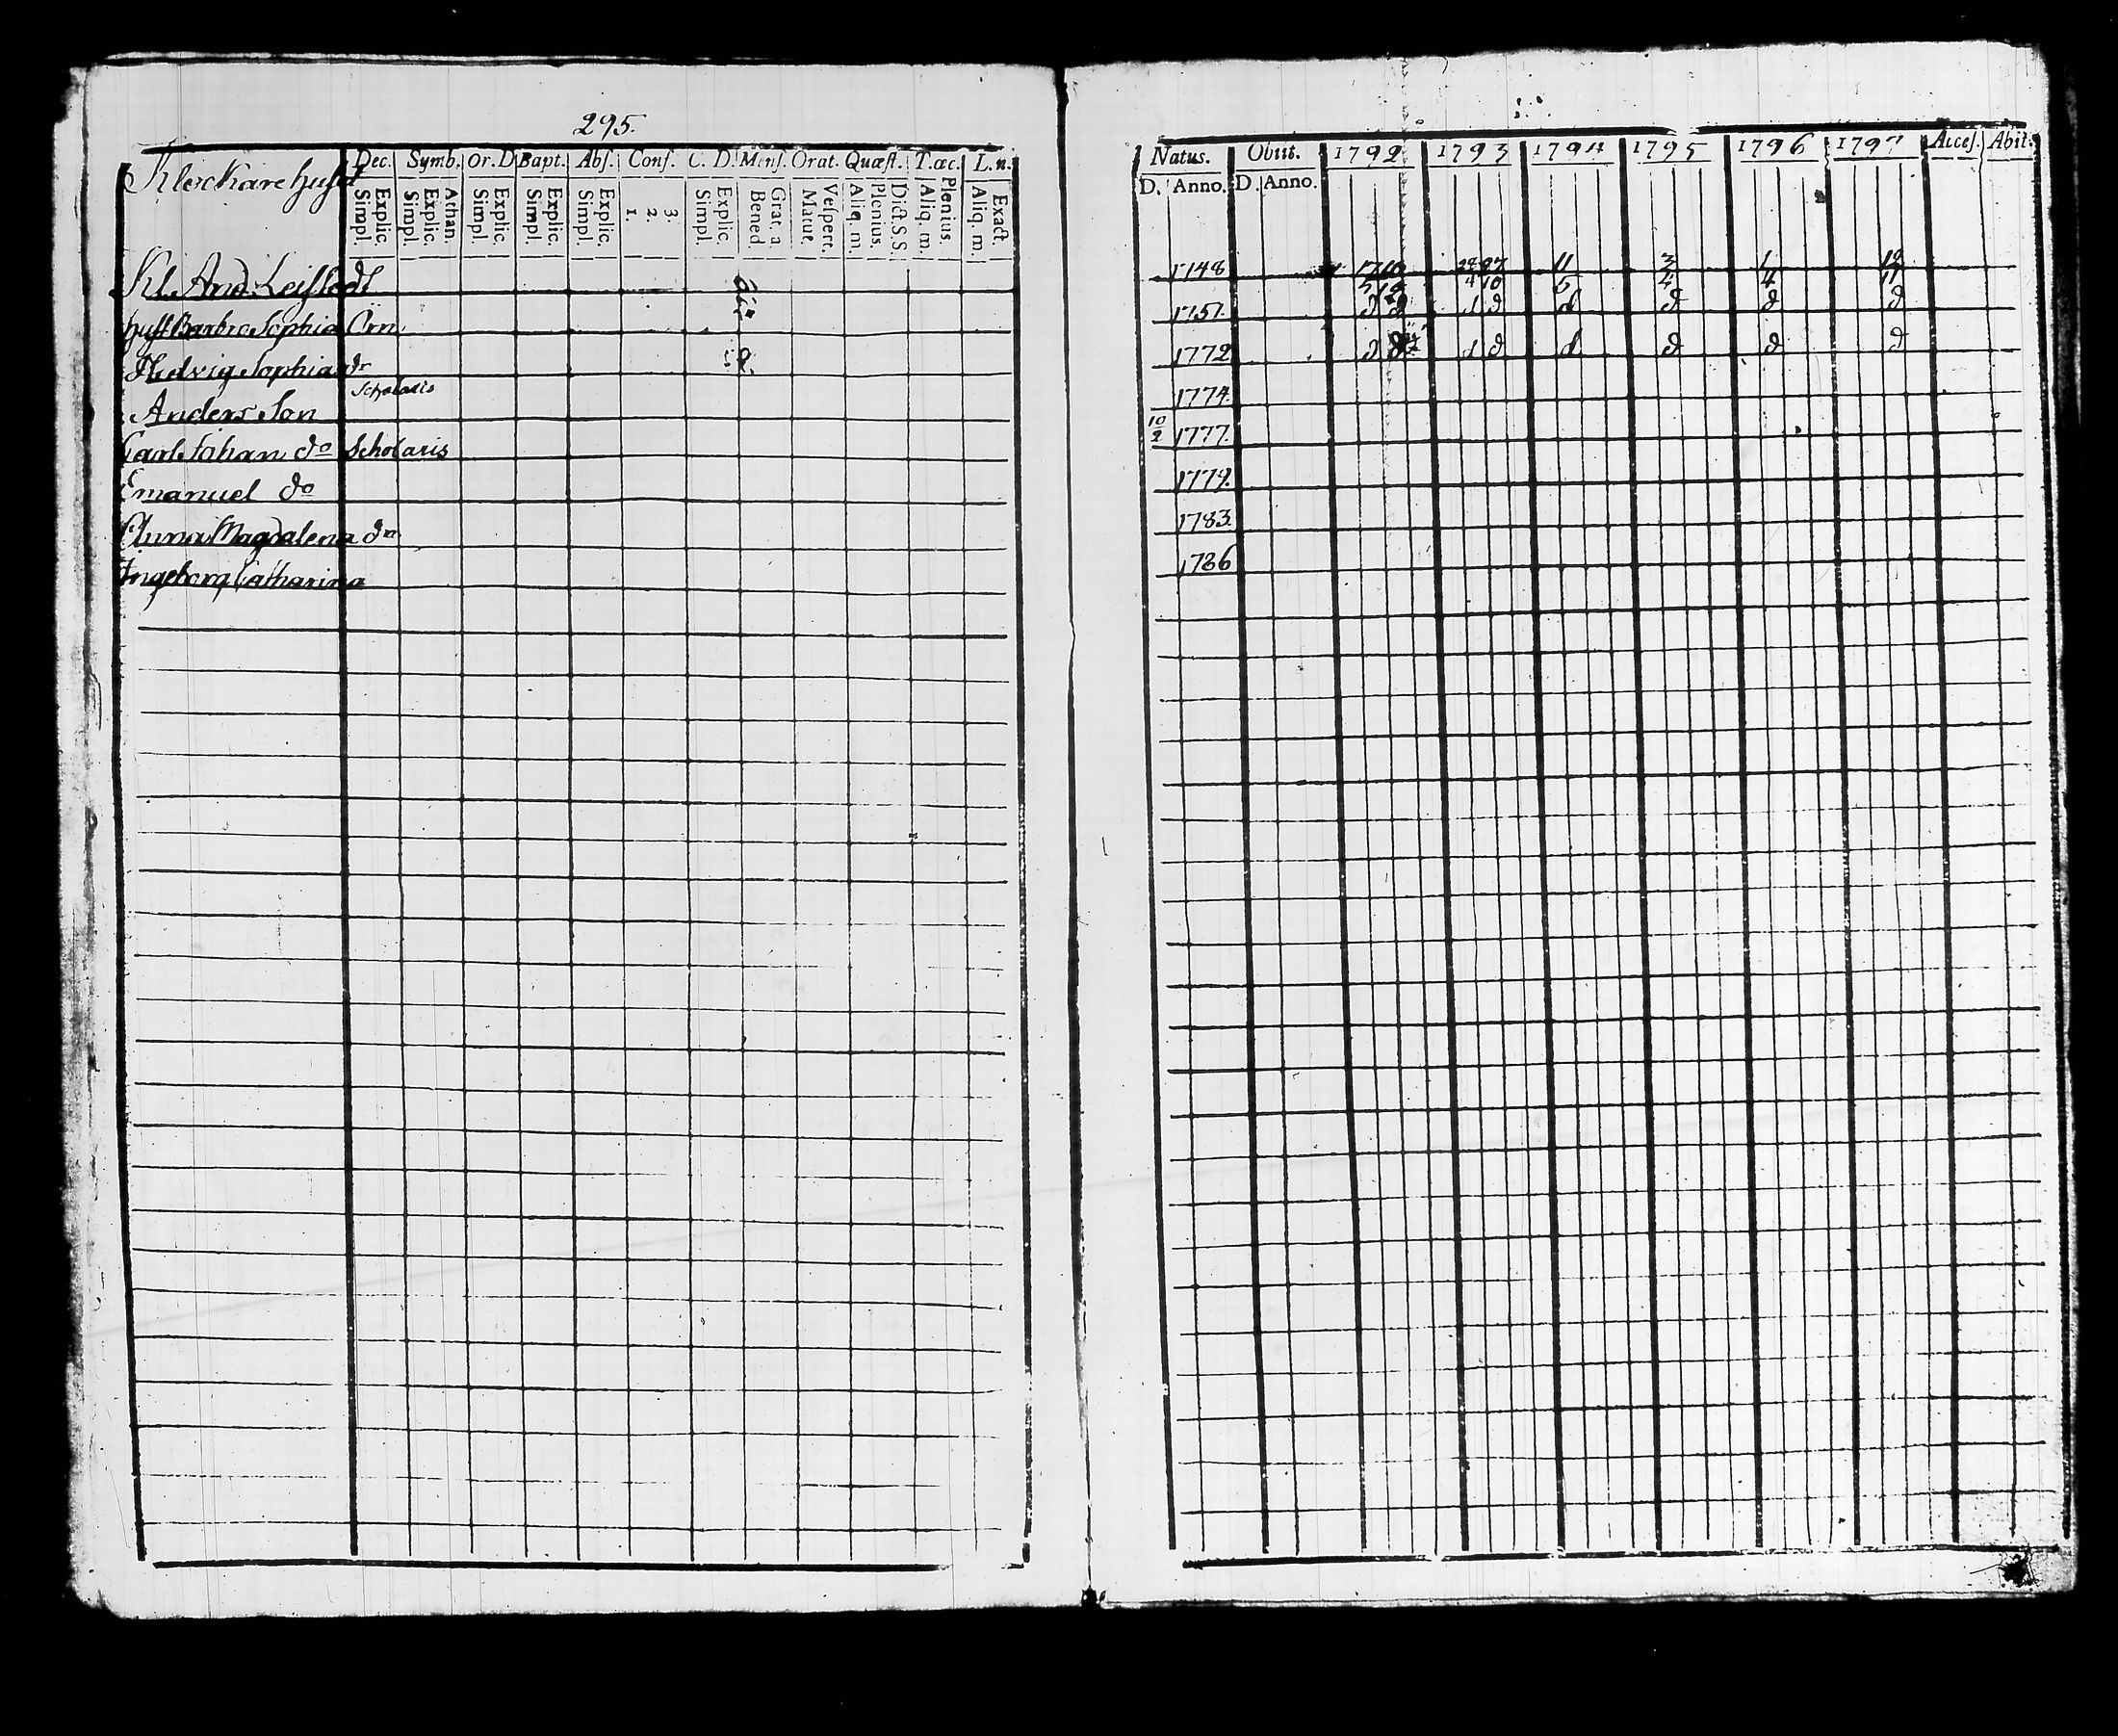 295.
Klockarehuset
Dec. Symb. Or. D Bapt. Abs. Conf. C. D. Mens. Orat. Quæst. T. œc. L. n.
Simpl. Explic. Simpl. Explic. Athan. Simpl. Explic. Simpl. Explic. Simpl. Explic. 1. 2. 3. Simpl. Explic. Bened. Grat. a Matut. Vespert. Aliq. m. Plenius. Dict. S. S. Aliq. m. Plenius. Aliq. m. Exact.
Kl. And. Leistedt
Hust Barbro Sophia
Hedvig Sophia dr
Anders Son Scholaris
Carl Johan do Scholaris
Emanuel do
Anna Magdalena dr
Ingeborg Catharina
Natus. Obiit. 1792 1793 1794 1795 1796 1797 Acces. Abit.
D. Anno. D. Anno.
1748 11 3 1 12
4 10 6 4 4 11
1751. d d d d d d d d
1772 d d d d d d d d
1774.
10/2 1777.
1779.
1783.
1786